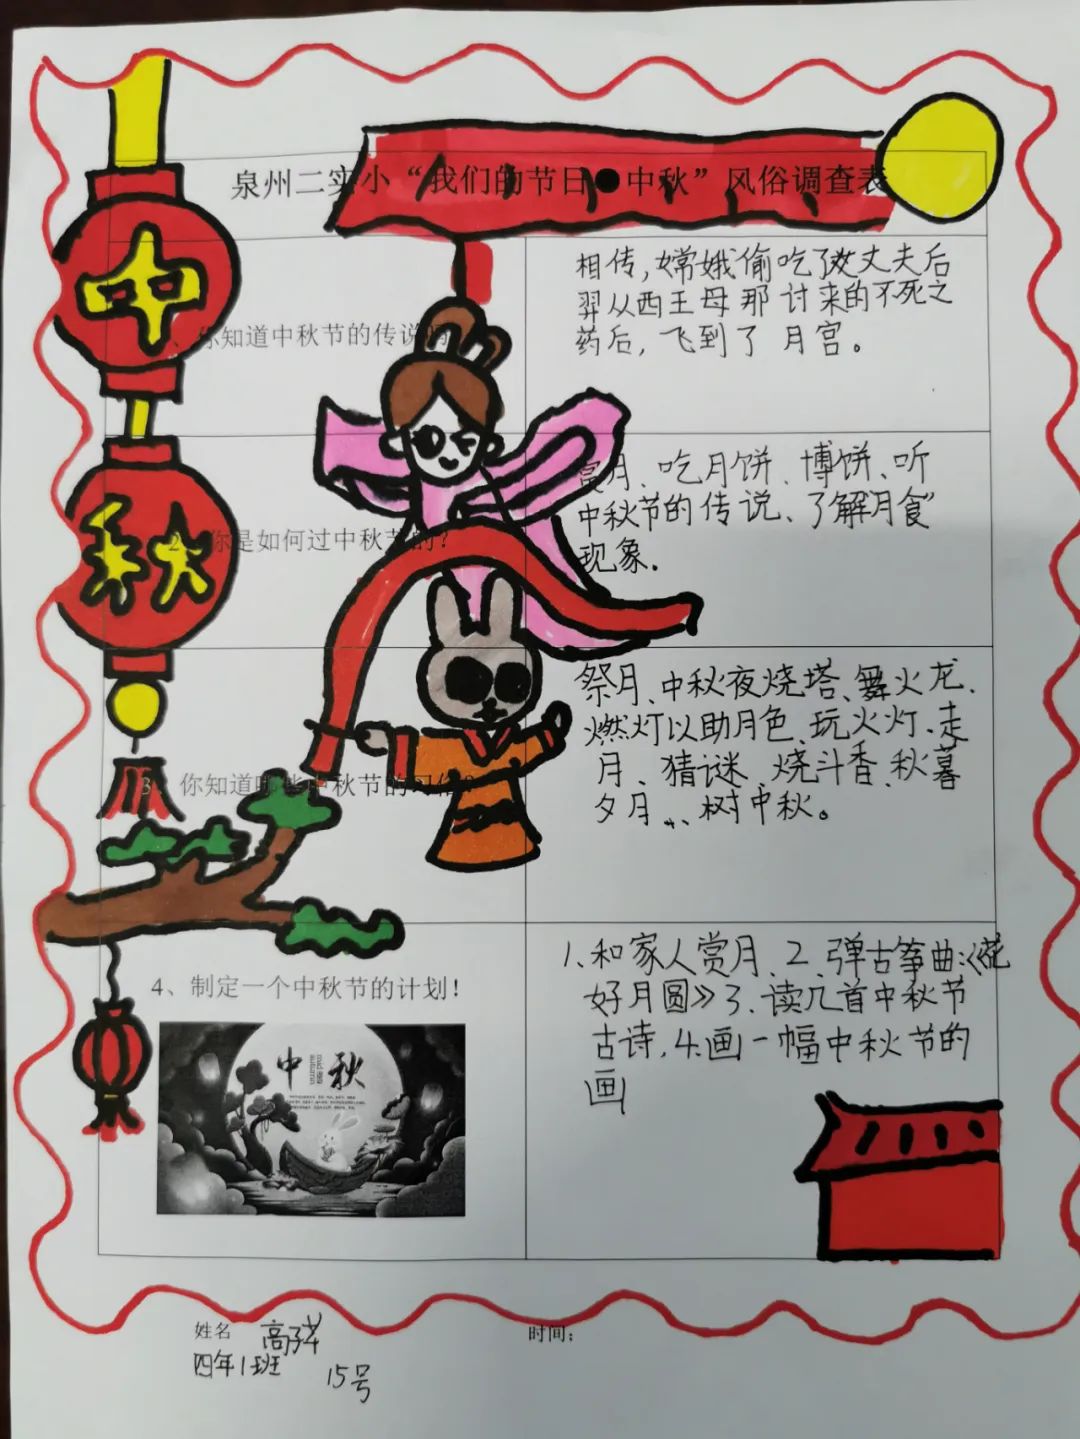 泉州二实小“我们的节日●中秋”风俗调查表
中
秋
、你知道中秋节的传说吗
相传,嫦娥偷吃了丈夫后
羿从西王母那讨来的不死之
药后,飞到了月宫。
2、你是如何过中秋节的?
赏月、吃月饼、博饼、听
中秋节的传说、了解“月食”
现象.
3、你知道哪些中秋节的习俗?
祭月、中秋夜烧塔、舞火龙、
燃灯以助月色、玩火灯、走
月、猜谜、烧斗香、秋暮
夕月、、树中秋。
4、制定一个中秋节的计划!
中秋
1、和家人赏月、2、弹古筝曲:《花
好月圆》3、读几首中秋节
古诗,4.画一幅中秋节的
画
姓名 高子
时间:
四年1班 15号